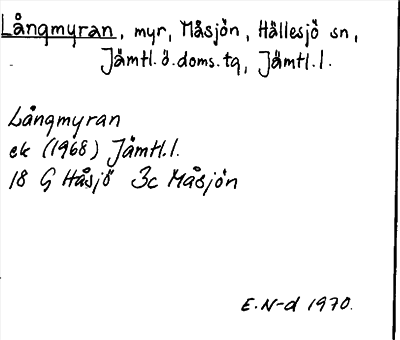 Långmyran, myr, Måsjön, Hällesjö sn,
Jämtl.ö.doms.tg, Jämtl.l.
Långmyran
ek (1968) Jämtl.l.
18 G Håsjö 3c Måsjön
E.N-d 1970.